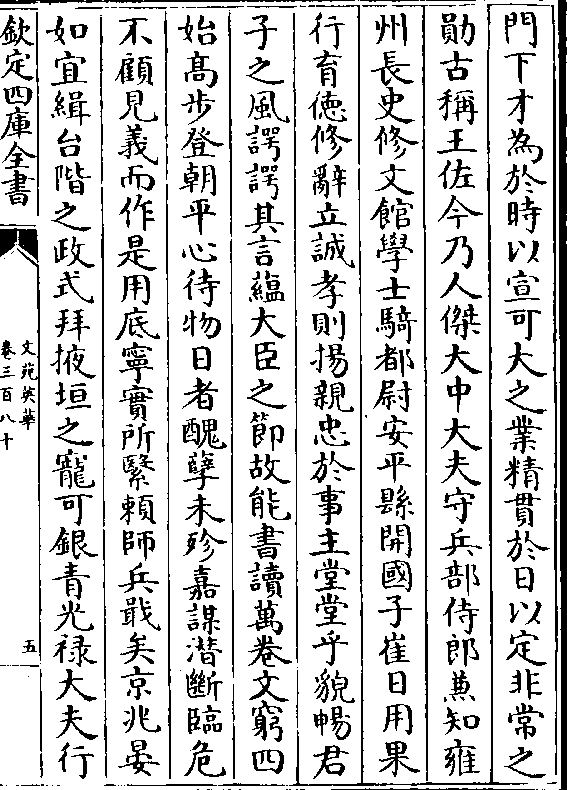 門下才為於時以宣可大之業精貫於日以定非常之
勛古稱王佐今乃人傑大中大夫守兵部侍郎兼知雍
州長史修文館學士騎都尉安平縣開國子崔日用果
行育徳修辭立誠孝則揚親忠於事主堂堂乎貌暢君
子之風諤諤其言藴大臣之節故能書讀萬卷文窮四
始髙步登朝平心待物日者醜孽未殄嘉謀潛斷臨危
不顧見義而作是用底寧實所繄賴師兵戢矣京兆晏
如宜緝台階之政式拜掖垣之寵可銀青光禄大夫行
欽定四庫全書
文苑英華
卷三百八十
五